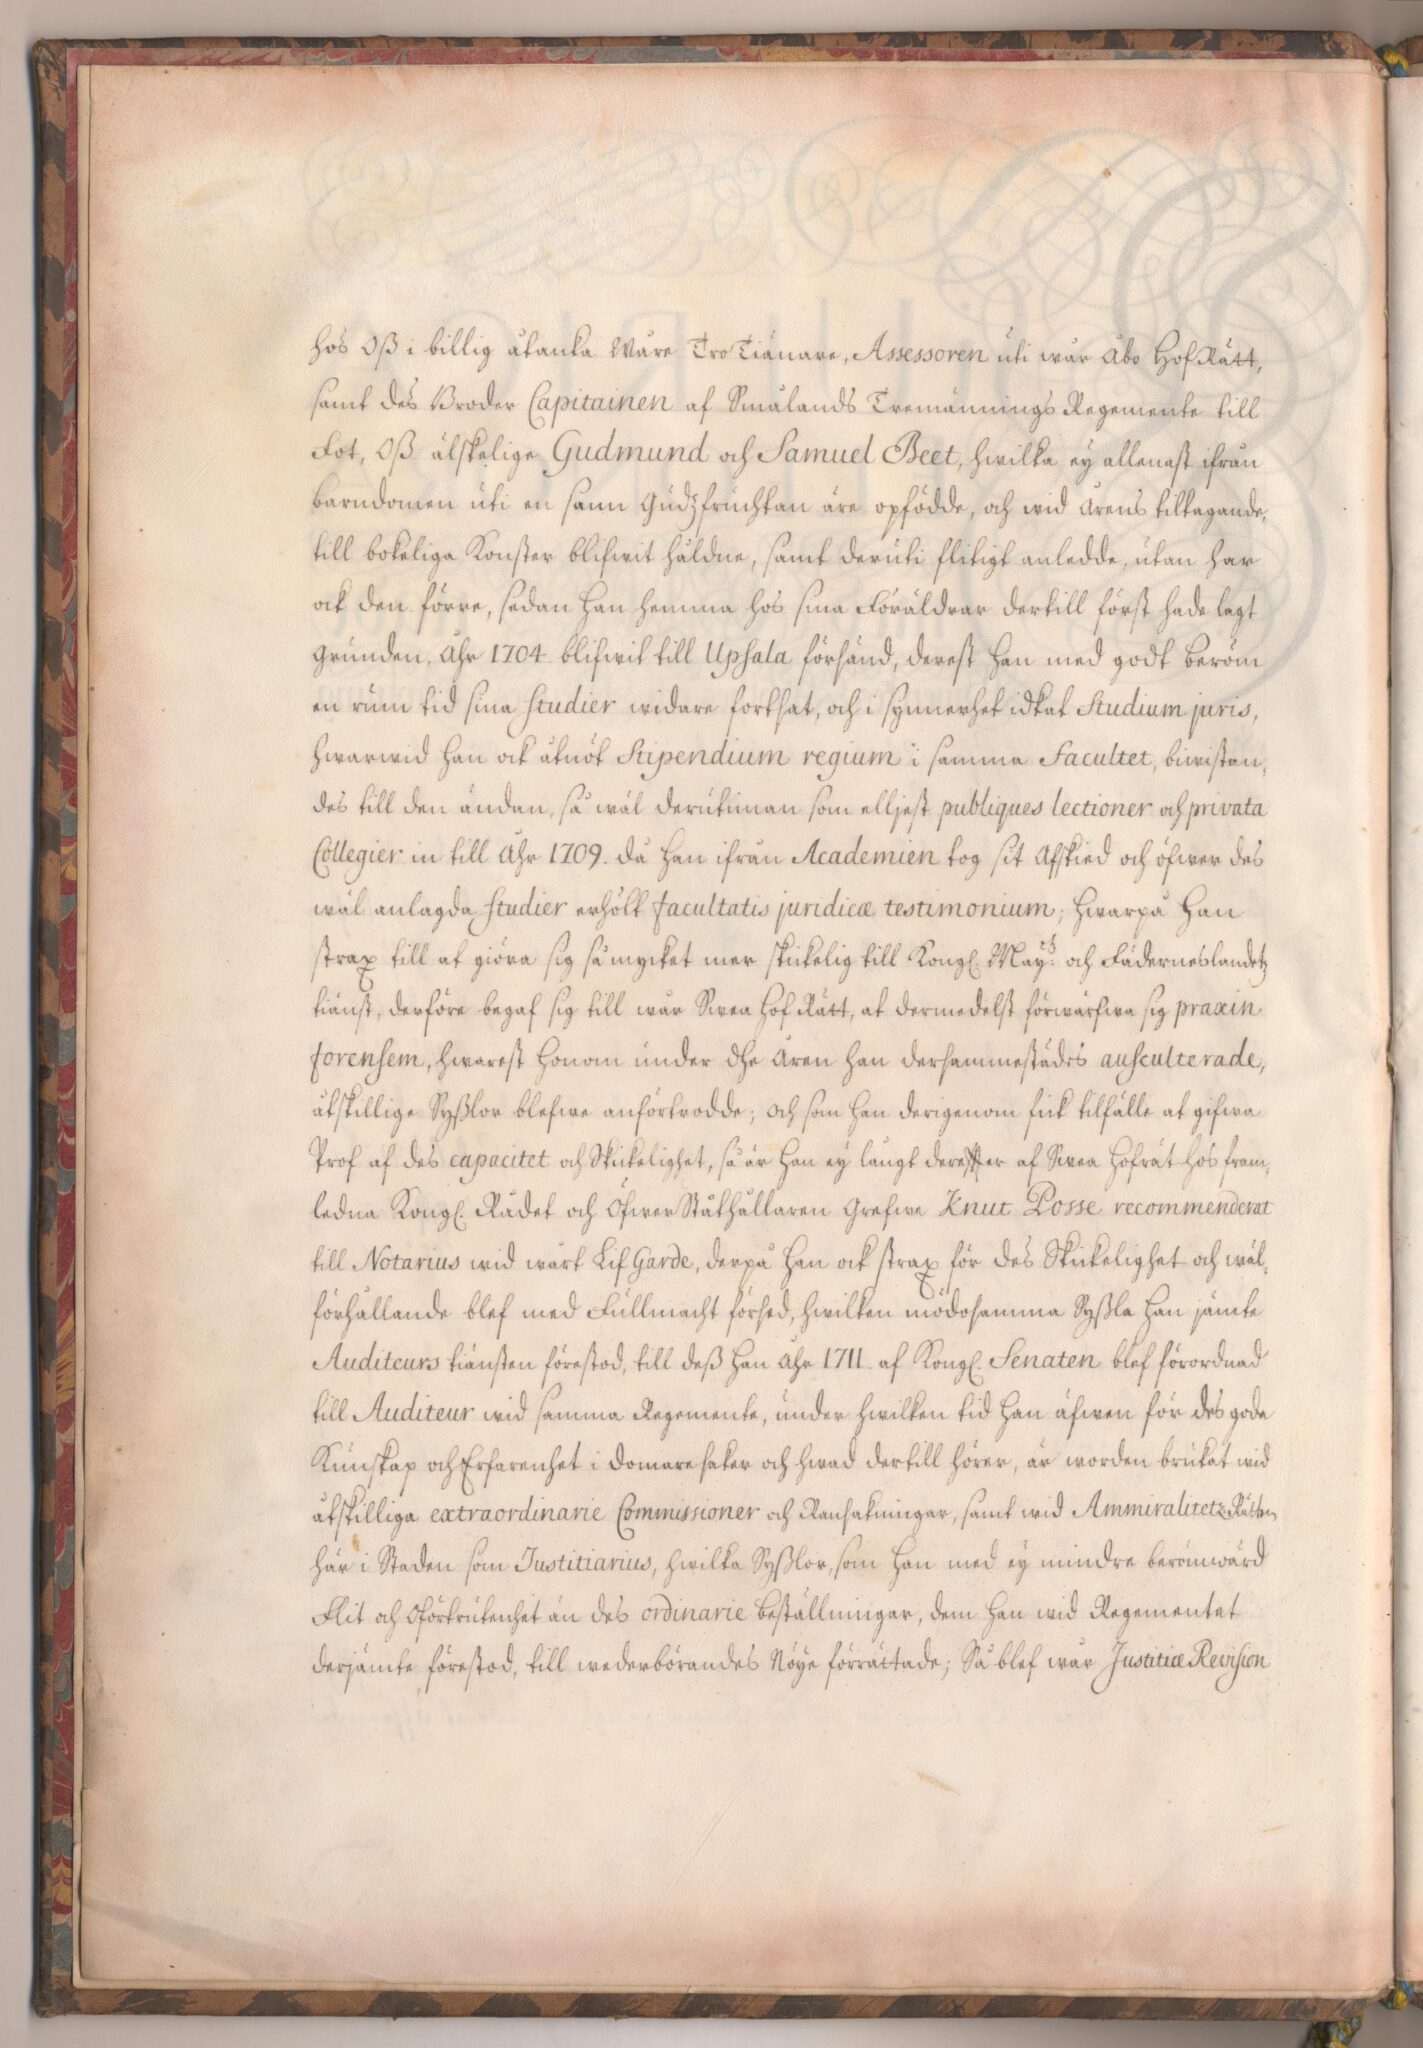 hos Oß i billig åtanka Wåre Tro Tiänare, Assessoren uti wår Åbo HofRätt,
samt des Broder Capitainen af Smålands Tremännings Regemente till
Fot, Oß älskelige Gudmund och Samuel Beet, hwilka ey allenast ifrån
barndomen uti en sann Gudzfruchtan äre opfödde, och wid Årens tiltagande,
till bokeliga Konster blifwit håldne, samt deruti flitigt anledde, utan har
ock den förre, sedan han hemma hos sina Föräldrar dertill först hade lagt
grunden, Åhr 1704. blifwit till Upsala försänd, derest han med godt beröm
en rum tid sina studier widare fortsat, och i synnerhet idkat Studium juris,
hwarwid han ock åtnöt Stipendium regium i samma Facultet, biwistan,
des till den ändan, så wäl derutinnan som elljest publiques lectioner och privata
Collegier in till Åhr 1709. då han ifrån Academien tog sit Afskied och öfwer des
wäl anlagda studier erhölt facultatis juridicæ testimonium; hwarpå han
strax till at giöra sig så mycket mer skickelig till Kongl. May:tz och Fäderneslandetz
tiänst, derföre begaf sig till wår Swea Hof Rätt, at dermedelst förwärfwa sig praxin
forensem, hwarest honom under dhe Åren han dersammestädes ausculterade,
åtskillige Sysslor blefwe anförtrodde; och som han derigenom fick tilfälle at gifwa
Prof af des capacitet och Skickelighet, så är han ey långt derefter af Swea Hofrät hos fram,
ledna Kongl. Rådet och Öfwer Ståthållaren Grefwe Knut Posse recommenderat
till Notarius wid wårt Lif Garde, derpå han ock strax för des Skickelighet och wäl,
förhållande blef med Fullmacht försed, hwilken mödosamma Syssla han jämte
Auditeurs tiänsten förestod, till deß han Åhr 1711. af Kongl. Senaten blef förordnad
till Auditeur wid samma Regemente, under hwilken tid han äfwen för des goda
Kunskap och Erfarenhet i domaresaker och hwad dertill hörer, är worden brukat wid
åtskilliga extraordinarie Commissioner och Ransakningar, samt wid AmmiralitetzRätten
här i Staden som Justitiarius, hwilka Sysslor, som han med ey mindre berömwärd
Flit och Oförtrutenhet än des ordinarie beställningar, dem han wid Regementet
derjämte förestod, till wederbörandes Nöye förrättade; Så blef wår Justitiæ Revision